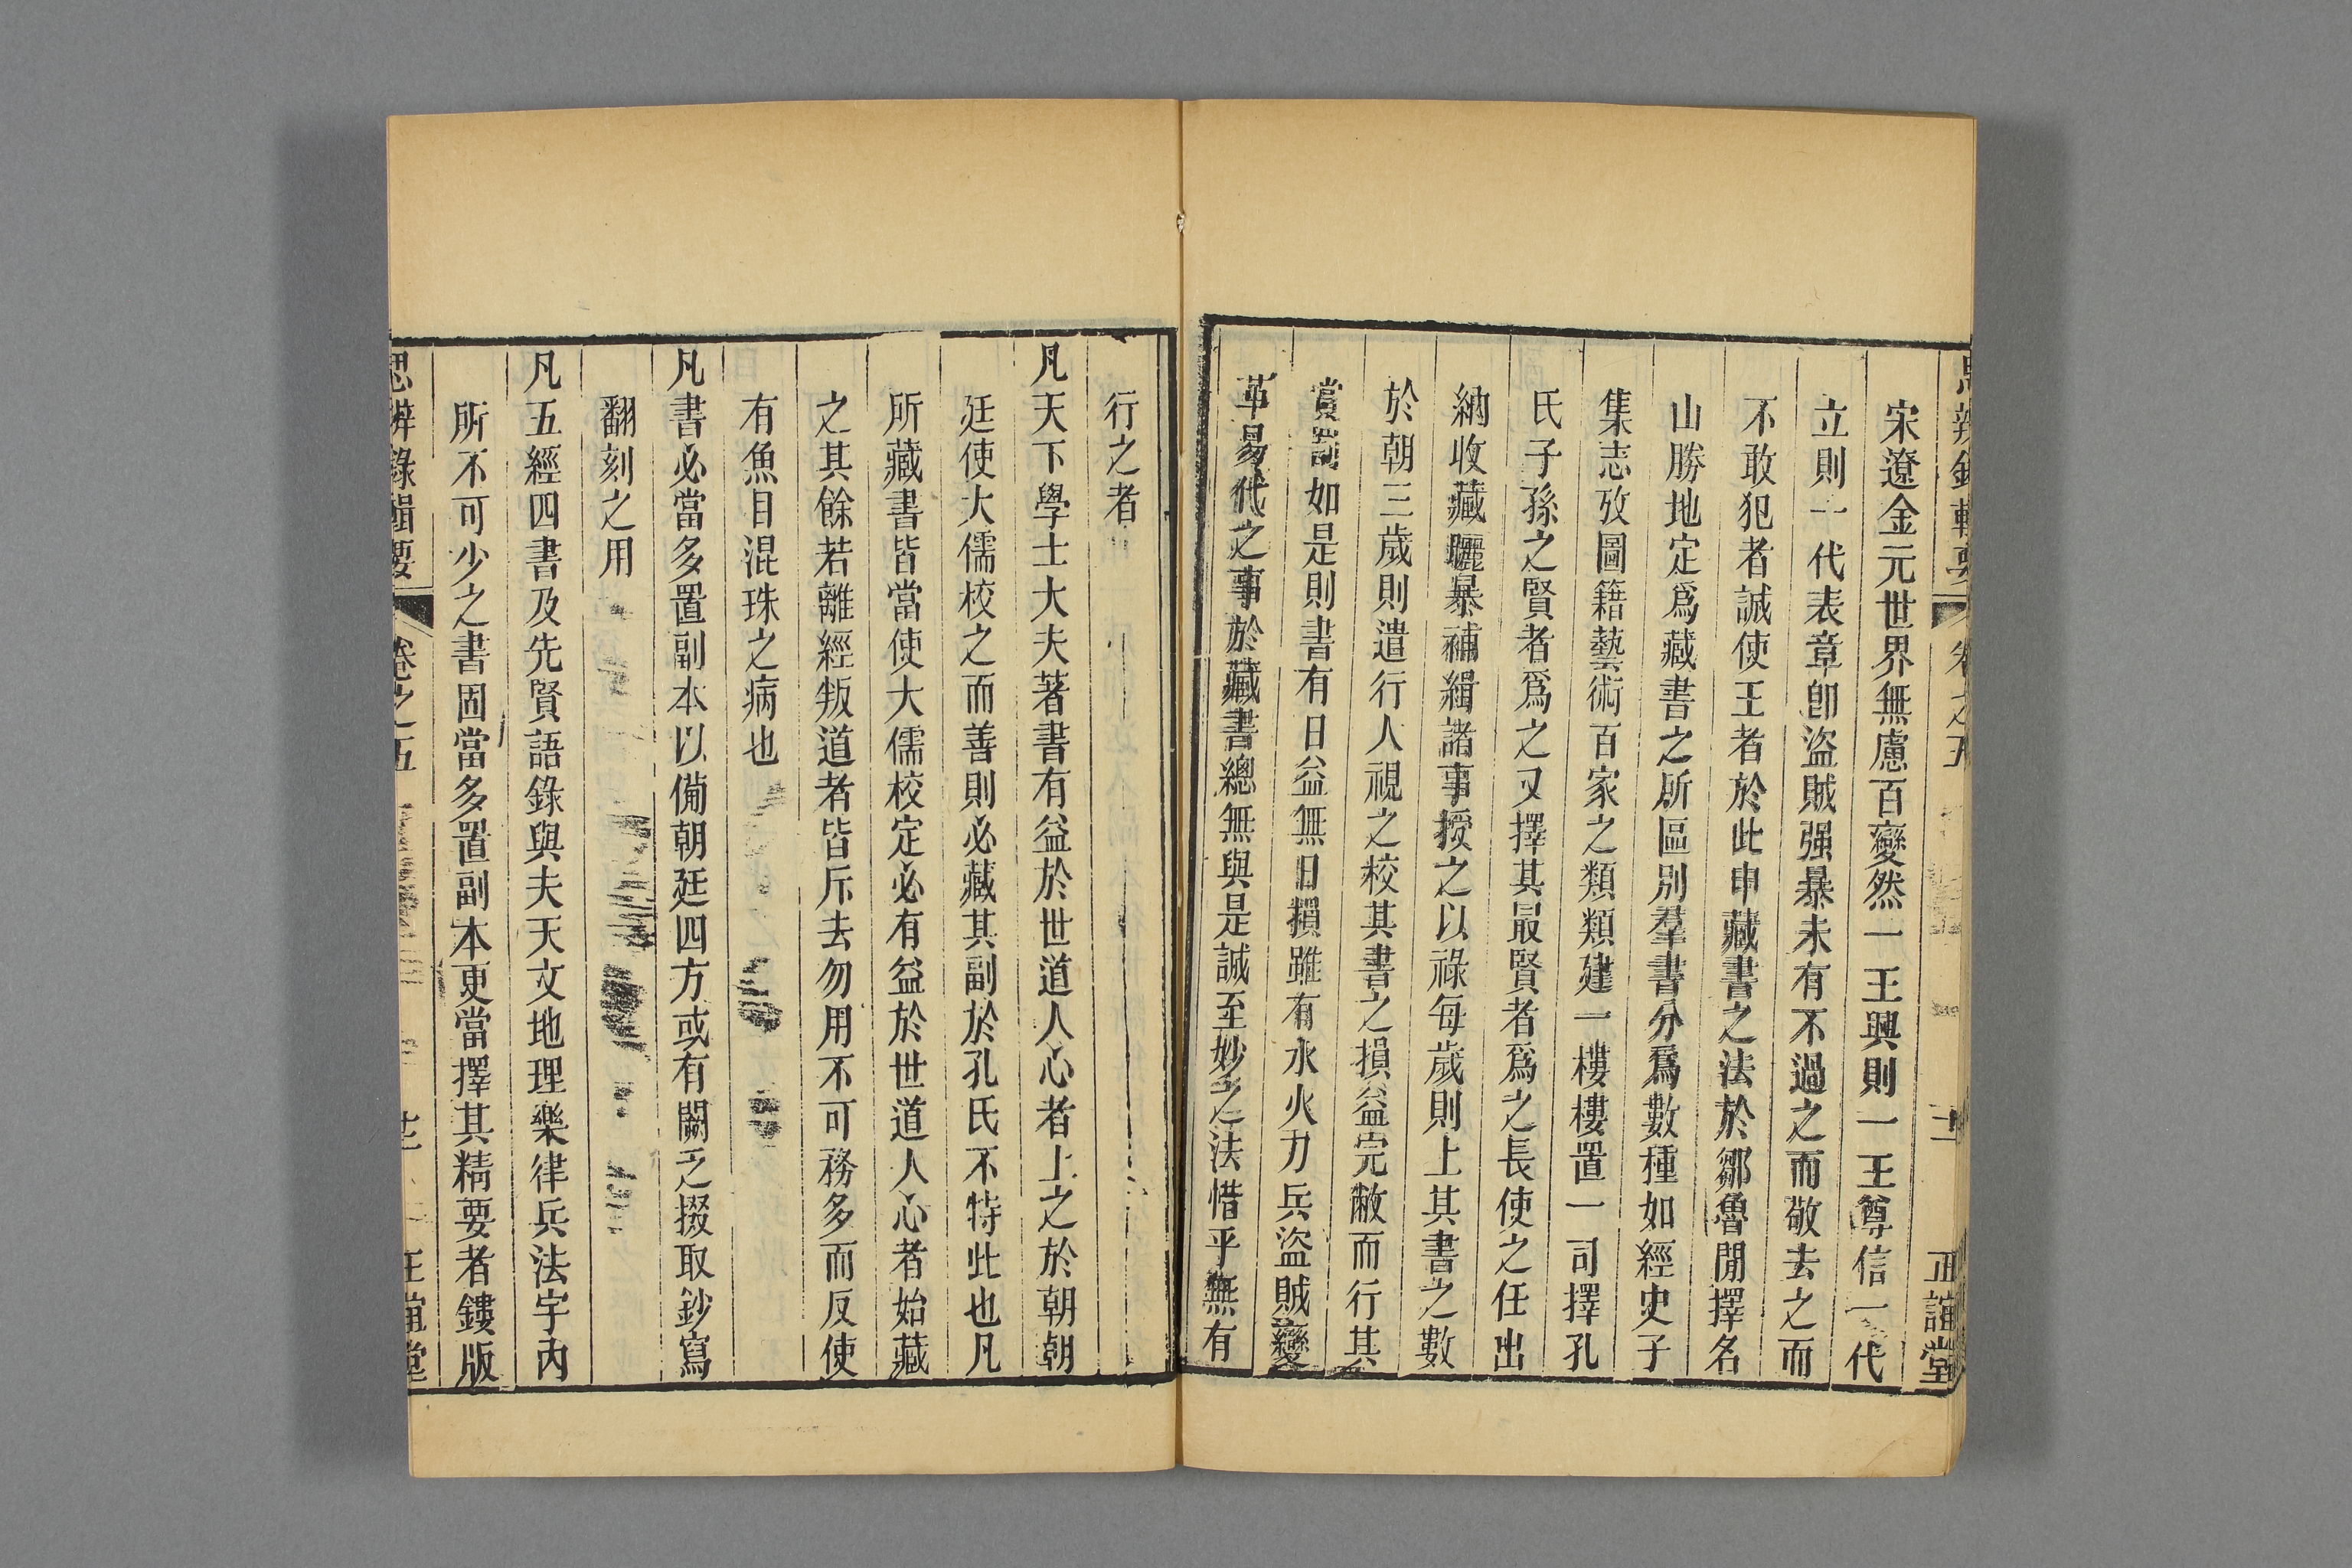 思辨錄輯要 卷之五 十二 正誼堂
宋遼金元世界無慮百變然一王興則一王尊信一代
立則一代表章卽盜賊强暴未有不過之而敬去之而
不敢犯者誠使王者於此申藏書之法於鄒魯閒擇名
山勝地定爲藏書之所區別羣書分爲數種如經史子
集志攷圖籍藝術百家之類類建一樓樓置一司擇孔
氏子孫之賢者爲之又擇其最賢者爲之長使之任出
納收藏曬暴補緝諸事授之以祿每歲則上其書之數
於朝三歲則遣行人視之校其書之損益完敝而行其
賞罰如是則書有日益無日損雖有水火刀兵盜賊變
革易代之事於藏書總無與是誠至妙之法惜乎無有
行之者
凡天下學士大夫著書有益於世道人心者上之於朝朝
廷使大儒校之而善則必藏其副於孔氏不特此也凡
所藏書皆當使大儒校定必有益於世道人心者始藏
之其餘若離經叛道者皆斥去勿用不可務多而反使
有魚目混珠之病也
凡書必當多置副本以備朝廷四方或有闕乏掇取鈔寫
翻刻之用
凡五經四書及先賢語錄與夫天文地理樂律兵法宇內
所不可少之書固當多置副本更當擇其精要者鏤版
思辨錄輯要 卷之五 正誼堂